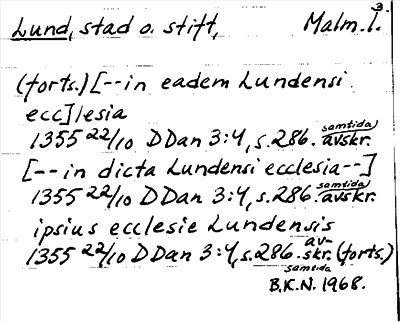 3.
Lund, stad o. stift, Malm. l.
(forts.) [--in eadem Lundensi
ecc]lesia
1355 22/10 DDan 3:4, s. 286. samtida avskr.
[--in dicta Lundensi ecclesia--]
1355 22/10 DDan 3:4, s. 286. samtida avskr.
ipsius ecclesie Lundensis
1355 22/10 DDan 3:4, s. 286. samtida av-skr. (forts.)
B.K.N. 1968.